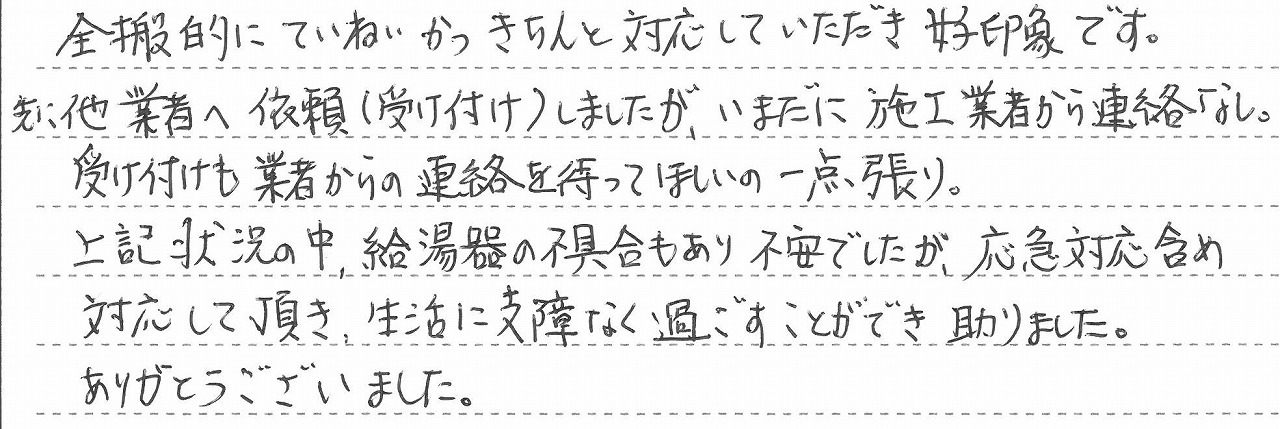 全搬的にていねいかつきちんと対応していただき好印象です。
先に他業者へ依頼(受け付け)しましたが、いまだに施工業者から連絡なし。
受け付けも業者からの連絡を待ってほしいの一点張り。
上記状況の中、給湯器の不具合もあり不安でしたが、応急対応含め
対応して頂き、生活に支障なく過ごすことができ助りました。
ありがとうございました。